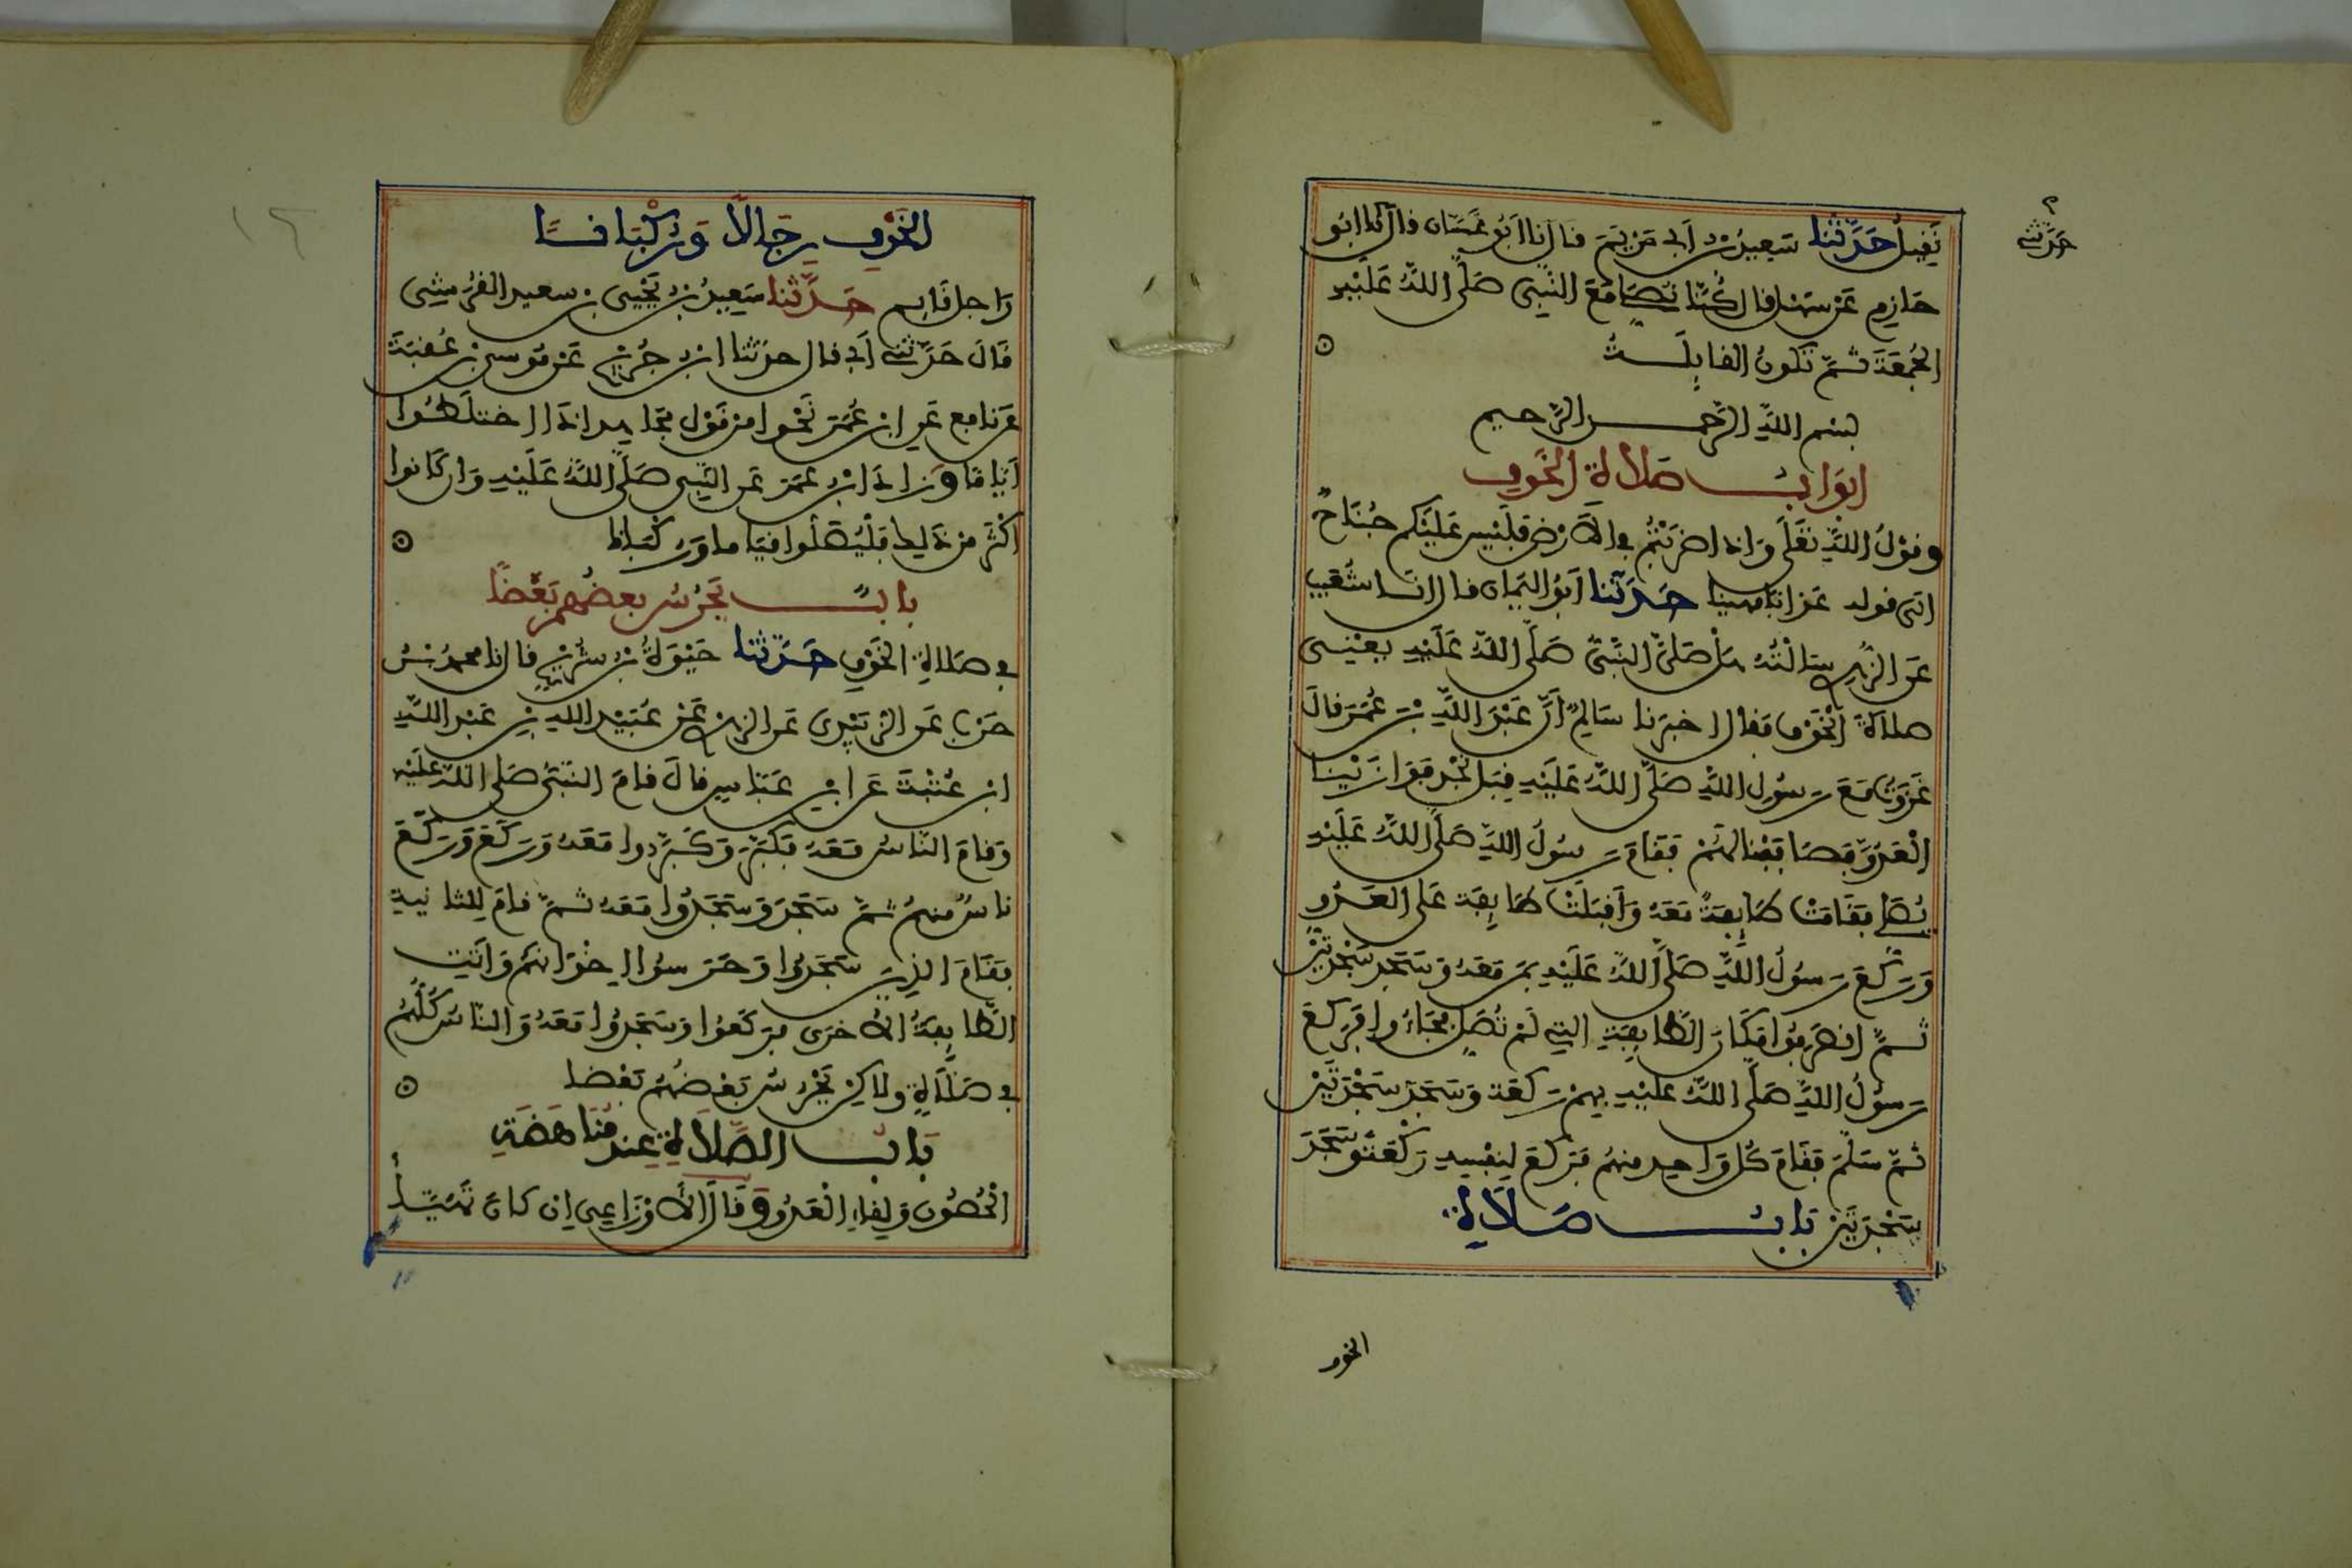 نَقِيلُ حَدَّثَنا سَعِيدُ بن أبي مَرْيَمَ قال نا أَبُو غَسَّان قال نا أبُو
حَدَّثني
حَازِمٍ عَن سَهْل قال كُنَّا نُصَلي مَعَ النَّبِيّ صَلَّى اللَّهُ عَلَيْهِ
الجُمُعَةَ ثُمَّ تَكُونُ القايِلَـــةُ
بسم اللَّهِ الرَّحمـــن الرَّحيم
ابوَابُـــ صَلاة الخَوفِ
وقوْلُ اللَّهِ تَعَلَى وَإذا ضرَبْتُمْ في الأَرْضِ فلَيْس عَلَيْكم جُنَاحٌ
الى قوله عَذابًا مهينا حَـدَّثنا أبُو اليَمَان قال انا شُعَيب
عَن الزهري سَالْتُه هَلْ صَلَّى النَّبيّ صَلَّى اللَّهُ عَلَيْهِ يعْنِي
صلاة الخَوْف فقال اخبرنا سَالِمٌ أنَّ عَبْدَ اللَّهِ بْنَ عُمَرَ قالَ
غَزَوْتُ مَعَ رَسُولِ اللَّهِ صَلَّى اللَّهُ عَلَيْهِ قِبَلَ نَجْدٍ فَوَازَيْنا
الْعَدُوَّ فصَافَفْنا لَهُمْ فَقَامَ رَسُولُ اللَّهِ صَلَّى اللَّهُ عَلَيْهِ
يُصَلي فقَامَتْ طَايِفةٌ مَعَهُ وَأَقبَلَتْ طَايِفَة عَلَى العَـدُوِّ
وَرَكعَ رَسُولُ اللَّهِ صَلَّى اللَّهُ عَلَيْهِ بمَن مَعَهُ وَسَجَد سَجْدَتَيْن
ثُـمَّ انصَرَفُوا مَكَانَ الطَّايِفَةِ التي لَمْ تُصَلِّ فَجَاءُوا فرَكعَ
رَسُولُ اللَّهِ صَلَّى اللَّهُ عَلَيْهِ بِهِمْ رَكعَة وَسَجَدَ سَجْدَتَيْن
ثُمَّ سَلَّمَ فَقَامَ كُل وَاحِدٍ مِنهُم فَرَكعَ لِنَفْسِهِ رَكْعَةً وَسَجَدَ
سَجْدَتَيْن بَابُـــ صَـلاَةِ
الخوف
الخَوْفِ رِجَالاً وَرُكْبَانــًا
رَاجل قَايِم حَـدَّثنا سَعِيدُ بنُ يَحْيَى بن سعيد القُرَشِي
قَالَ حَدَّثني أبي قال حدَثنا ابن جُرَيْج عَن مُوسى بن عُقبَةَ
عَن نافع عَن ابن عُمَرَ نَحْوا من قَوْل مجَاهِد إذَا اختلَطُوا
قيَامًا وَزادَ ابن عُمَرَ عَن النَّبِي صَلَّى اللَّهُ عَلَيْهِ وَإن كَانوا
أكْثَر مِن ذَلِكَ فَلْيُصَلُّوا قيَاما ورُكْبَانا
بابُـــ يَحْرُسُ بعضُهم بَعْضًا
في صَلاةِ الخَوْفِ حَـدَّثنا حَيْوَةُ بنُ شُرَيْح قال نا محمد بن
حَرْب عَن الزُّبَيْدِي عَن الزهري عَنْ عُبَيْد اللهِ بْنِ عَبْدِ اللَّهِ
ابن عُتْبَةَ عَن ابن عَبَّاسٍ قالَ قامَ النَّبيُّ صَلى اللَّهُ عَلَيْهِ
وَقامَ النَّاسُ مَعَهُ فكَبَّرَ وَكَبَّروا مَعَهُ وَرَكَعَ وَرَكَعَ
نَاسٌ مِنهُمْ ثُمَّ سَجَدَ وَسَجَدُوا مَعَهُ ثُـمَّ قامَ لِلثانِيَةِ
فَقَامَ الذِينَ سَجَدُوا وَحَرَسُوا إخْوَانهُم وَأتَتِ
الطَّايِفَةُ الأُخرَى فرَكَعُوا وَسَجَدُوا مَعَهُ وَالناسُ كُلُّهُم
في صَلاَةٍ ولاكِن يَحْرُسُ بَعْضُهُم بَعْضا
بَابُـــ الصَّلاَةِ عِند مُنَاهَضَةِ
الْحُصُونِ وَلِقاءِ الْعَدُوِّ وقَالَ الأَوْزَاعِي إن كانَ تَهَيَّـأَ